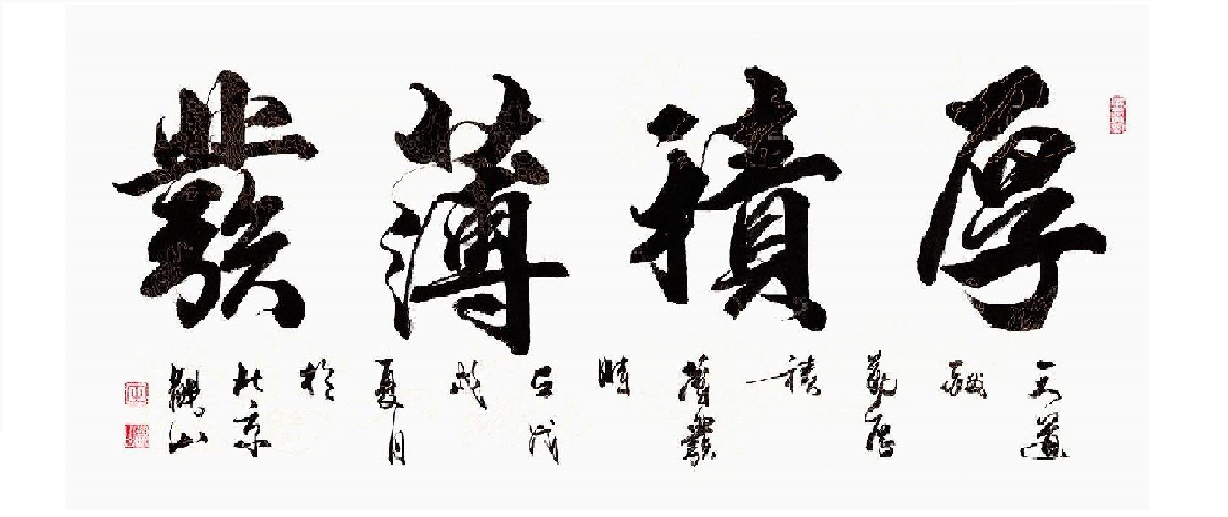 厚積薄發
天道
酬
勤厚
積
薄發
時
戊
戌
夏月
於
北京
山